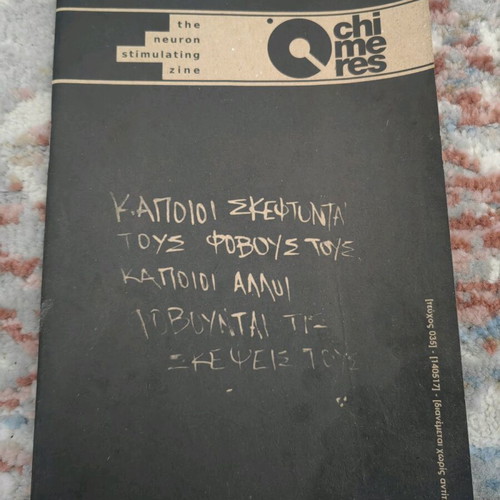 the
neuron
stimulating
zine
chi
me
res
ΚΑΠΟΙΟΙ ΣΚΕΦΤΟΝΤΑΙ
ΤΟΥΣ ΦΟΒΟΥΣ ΤΟΥΣ
ΚΑΠΟΙΟΙ ΑΛΛΟΙ
ΦΟΒΟΥΝΤΑΙ ΤΙΣ
ΣΚΕΨΕΙΣ ΤΟΥΣ
[τεύχος 035] - [140517] - [διανέμεται χωρίς